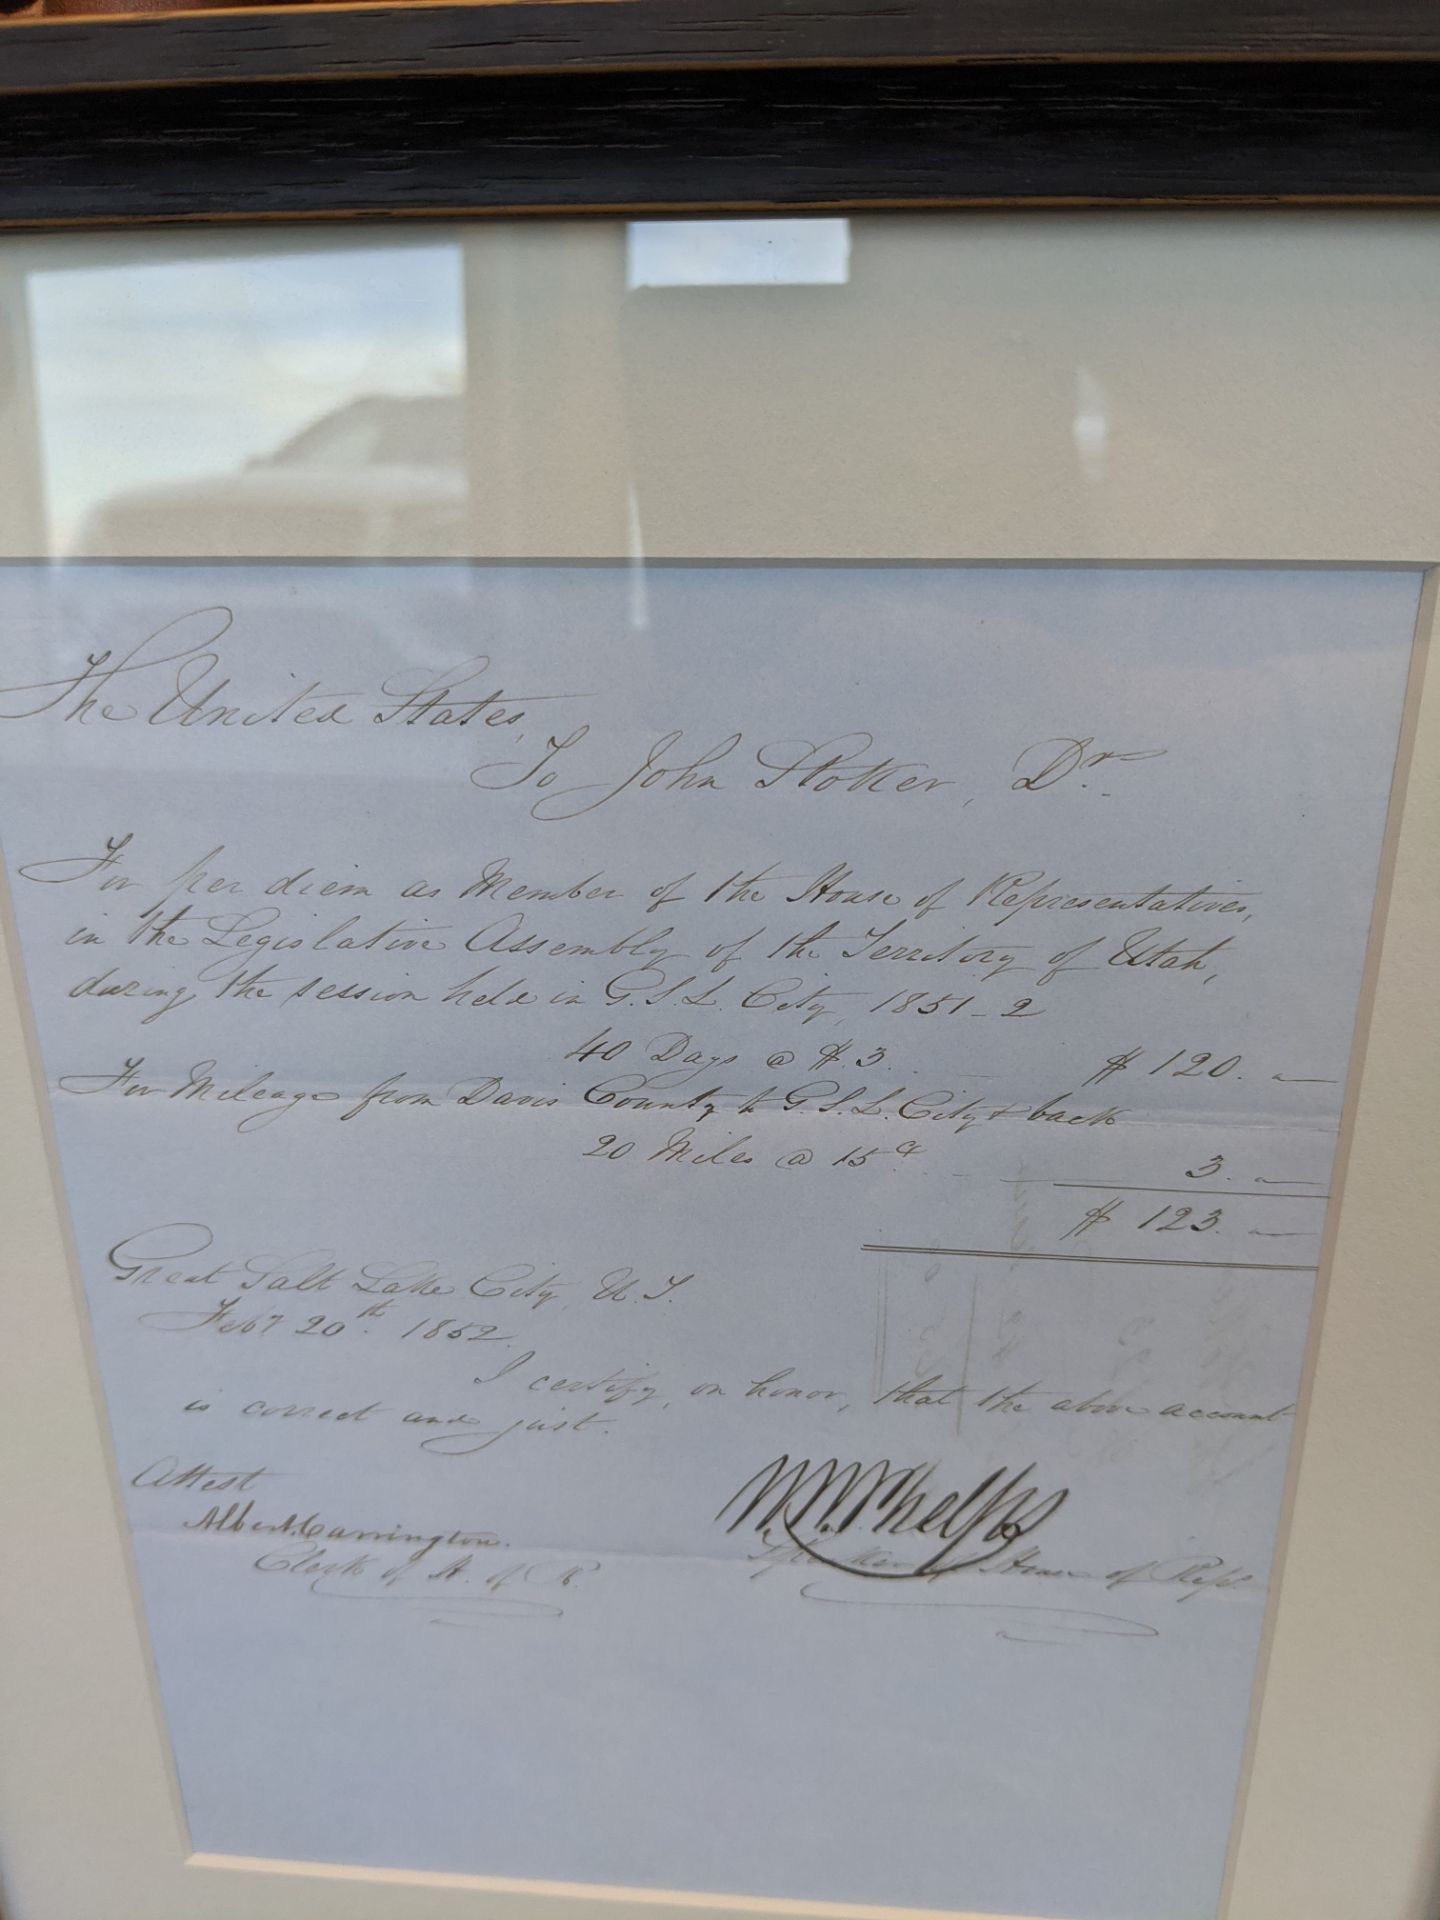 The United States,
To John Stoker, Dr.
For per diem as Member of the House of Representatives,
in the Legislative Assembly of the Territory of Utah,
during the session held in G. S. L. City, 1851-2
40 Days @ $3. $120. —
For Mileage from Davis County to G. S. L. City & back
20 Miles @ 15 3. —
$123. —
Great Salt Lake City, U. T.
Feby 20th. 1852.
I certify, on honor, that the above account
is correct and just.
Attest
Albert Carrington.
Clerk of H. of R.
W. W. Phelps
Speaker of House of Reps.